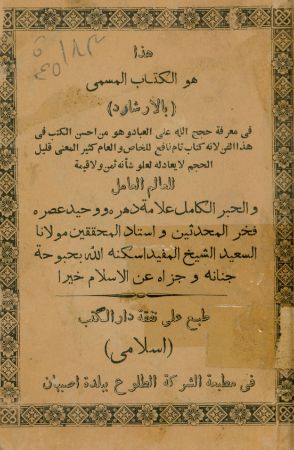 هذا
هو الكتاب المسمى
(بالارشاد)
فى معرفة حجج الله على العباد و هو من احسن الكتب فى
هذا الفن لانه كتاب تام نافع للخاص والعام كثير المعنى قليل
الحجم لا يعادله لعلو شأنه ثمن ولا قيمة
للعالم العامل
والحبر الكامل علامة دهره و وحيد عصره
فخر المحدثين و استاد المحققين مولانا
السعيد الشيخ المفيد اسكنه الله بحبوحة
جنانه و جزاه عن الاسلام خيرا
طبع على نفقة دار الكتب
(اسلامى)
فى مطبعة الشركة الطلوع ببلدة اصبهان